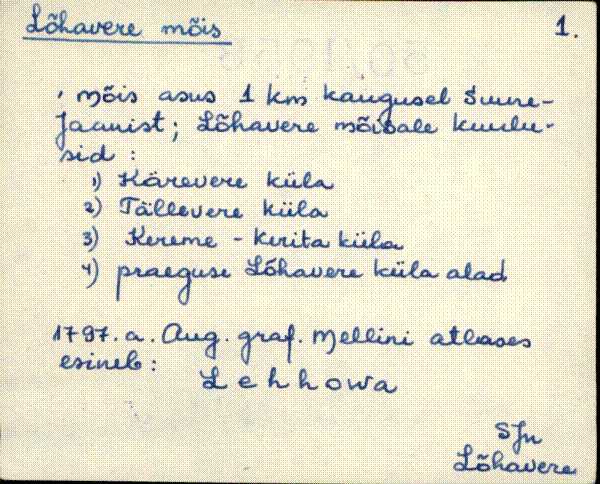 Lõhavere mõis
1.
Mõis asus 1 km kaugusel Suure-
Jaanist; Lõhavere mõisale kuulu-
sid :
1) Kärevere küla
2) Tällevere küla
3) Kereme - Kerita küla
4) praeguse Lõhavere küla alad
1797. a. Aug. graf. Mellini atlases
esineb :
Lehhowa
SJn
Lõhavere